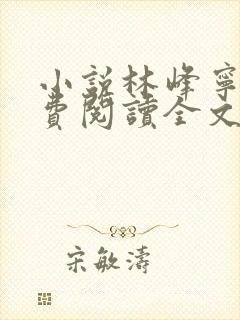 小説林峰寧
費閱讀全文
宋敏濤